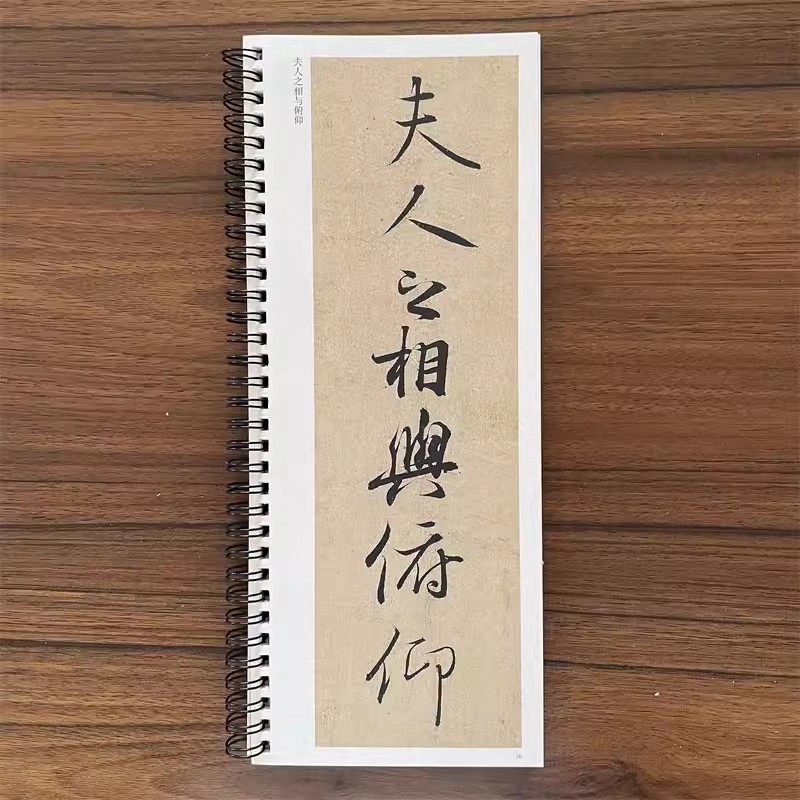 夫人之相与俯仰
夫人之相與俯仰